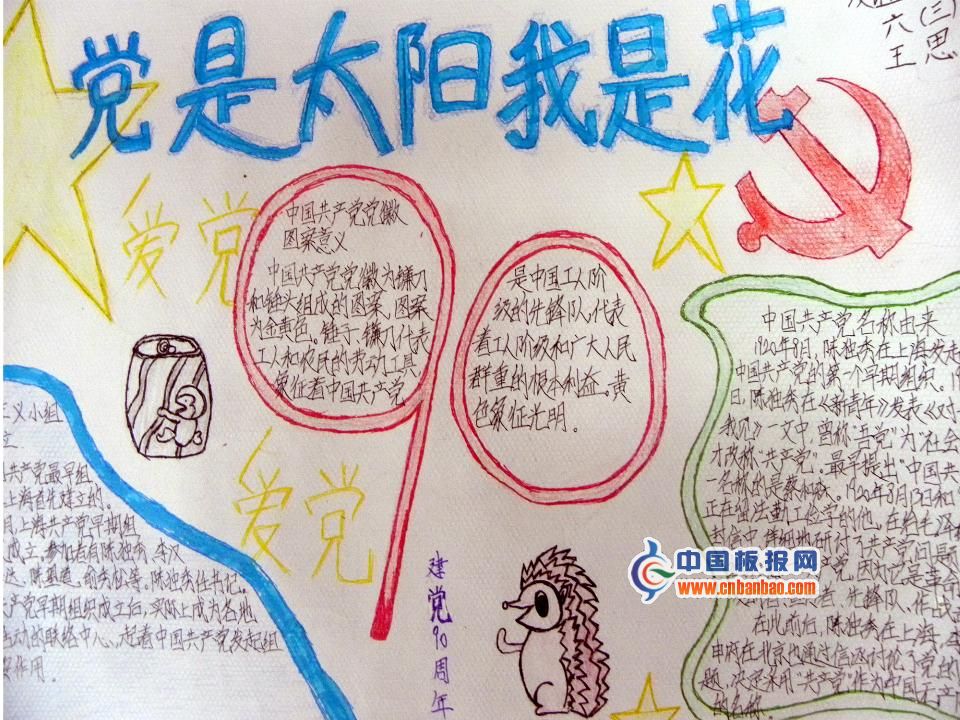 党是太阳我是花
六(三)
王思
爱党
中国共产党党徽
图案意义
中国共产党党徽为镰刀
和锤头组成的图案,图案
为金黄色。锤子、镰刀代表
工人和农民的劳动工具
象征着中国共产党
是中国工人阶
级的先锋队,代表
着工人阶级和广大人民
群重的根本利益。黄
色象征光明。
爱党
建党90周年
义小组
立
共产党最早组
上海首先建立的。
月,上海共产党早期组
成立,参加者有陈独秀、李汉
陈独秀任书记。
产党早期组织成立后,实际上成为各地
主动的联络中心,起着中国共产党发起组
要作用。
中国共产党名称由来
1920年8月,陈独秀在上海发起
中国共产党的第一个早期组织。
日,陈独秀在《新青年》发表《对
我见》一文中,曾称“吾党”为“社会
才改称“共产党”。最早提出“中国共
一名称的是蔡和森。1920年8月13日和
正在留法勤工俭学的他,在给毛泽
封信中,详细地研讨了共产党问题
党,因为它是革命
者、先锋队、作战
在此前后,陈独秀在上海、李
申府在北京也通过信函讨论了党的
题,决定采用“共产党”作为中国无产
的名称。
中国板报网
www.cnbanbao.com